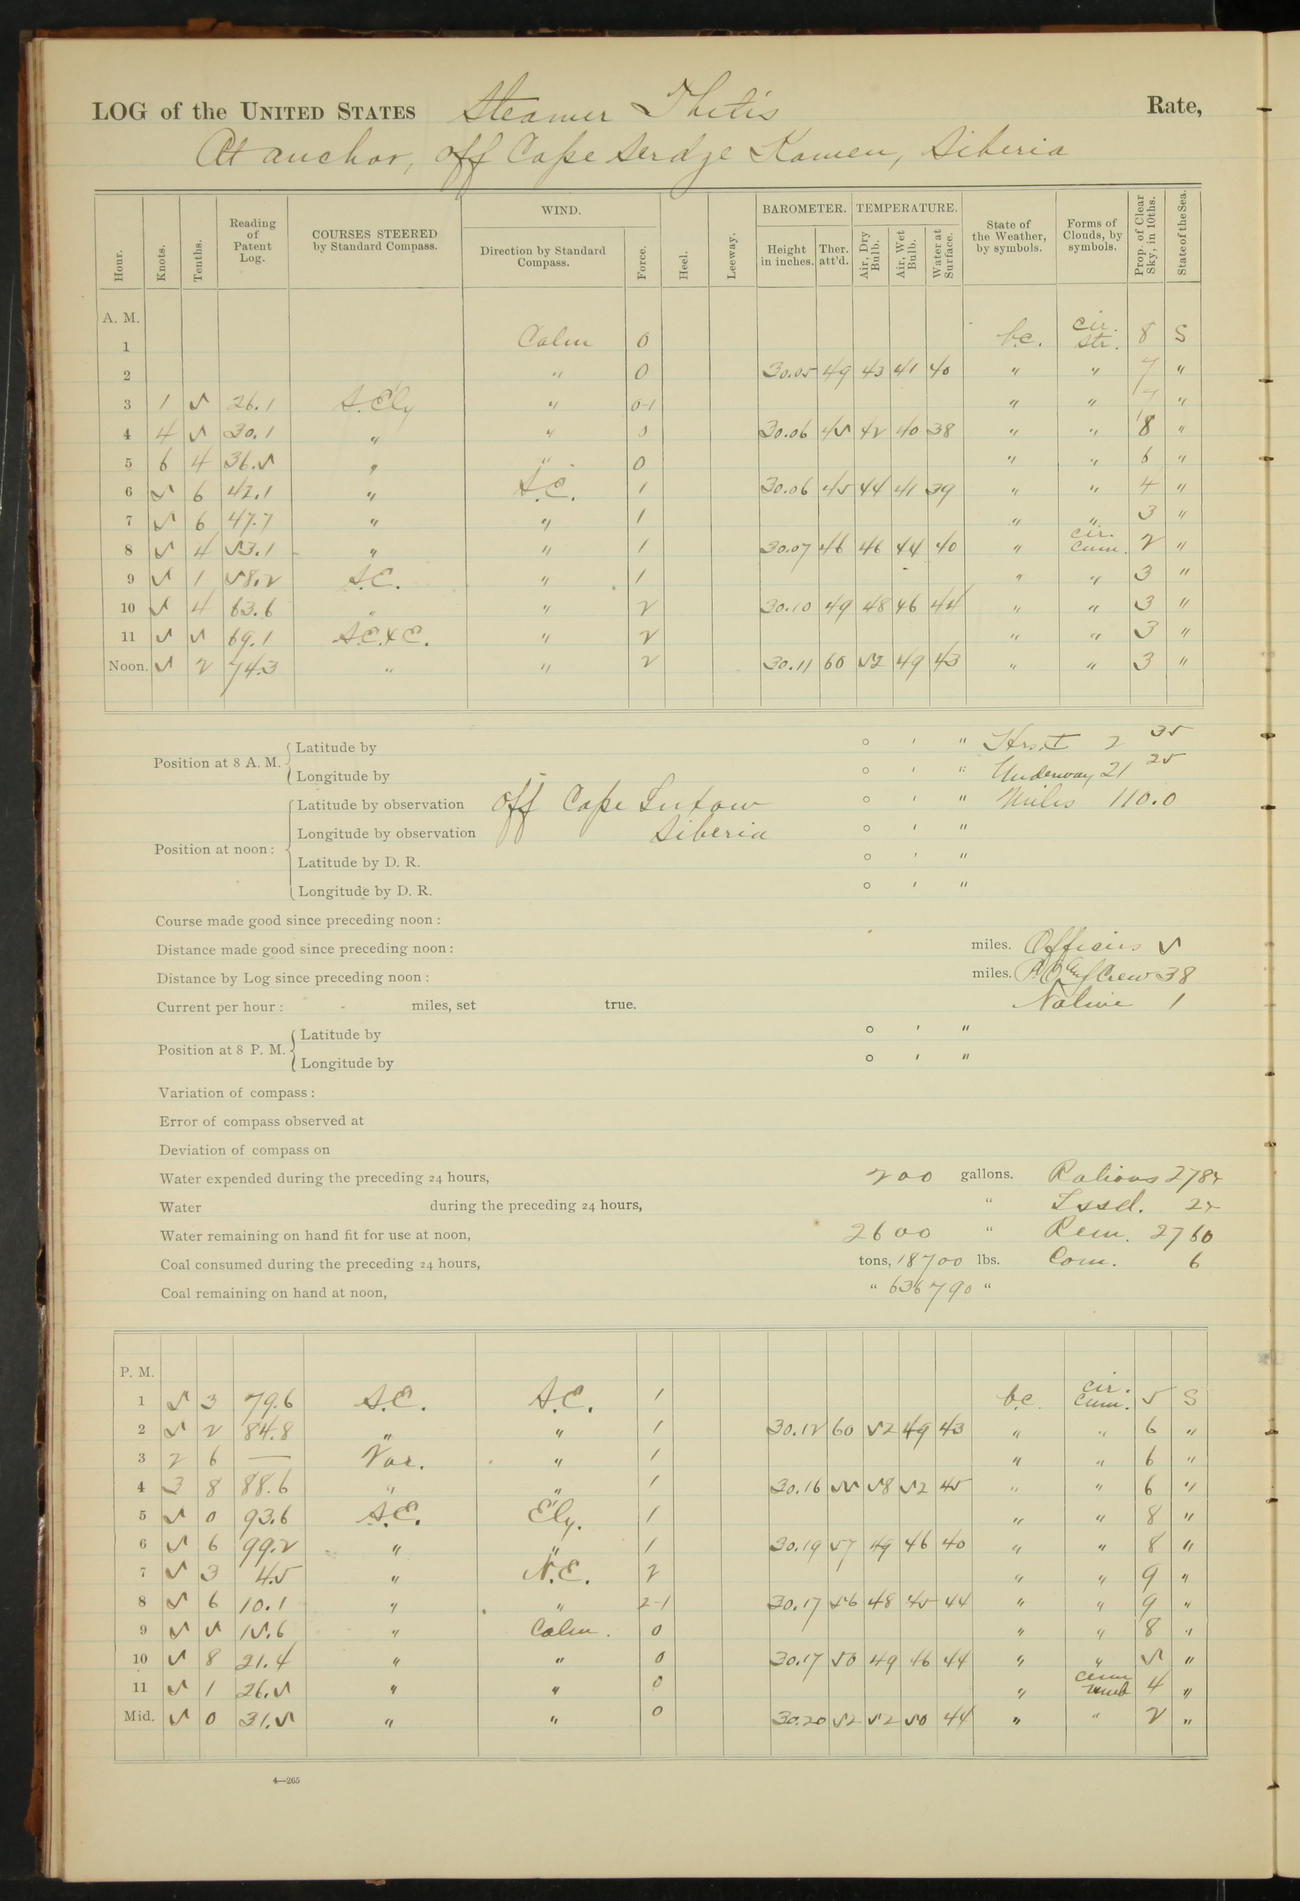 LOG of the UNITED STATES Steamer Thetis Rate,
At anchor, off Cape Serdze Kamen, Siberia
Hour. Knots. Tenths. Reading of Patent Log. COURSES STEERED by Standard Compass. WIND. Direction by Standard Compass. Force. Heel. Leeway. BAROMETER. Height in inches. Ther. att'd. TEMPERATURE. Air, Dry Bulb. Air, Wet Bulb. Water at Surface. State of the Weather, by symbols. Forms of Clouds, by symbols. Prop. of Clear Sky, in 10ths. State of the Sea.
A. M.
1 Calm 0 b.c. cir. str. 8 S
2 " 0 30.05 49 43 41 40 " " 7 "
3 1 5 26.1 S.Ely " 0-1 " " 7 "
4 4 5 30.1 " " 0 30.06 45 42 40 38 " " 8 "
5 6 4 36.5 " " 0 " " 6 "
6 5 6 42.1 " S.E. 1 30.06 45 44 41 39 " " 4 "
7 5 6 47.7 " " 1 " " 3 "
8 5 4 53.1 " " 1 30.07 46 46 44 40 " cir. cum. 2 "
9 5 1 58.2 S.E. " 1 " " 3 "
10 5 4 63.6 " " 2 30.10 49 48 46 44 " " 3 "
11 5 5 69.1 S.E.xE. " 2 " " 3 "
Noon. 5 2 74.3 " " 2 30.11 60 52 49 43 " " 3 "
Position at 8 A. M. Latitude by ° ' " Hrs. 2 35
Longitude by ° ' " Underway 21 25
Position at noon: Latitude by observation off Cape Lutow ° ' " Miles 110.0
Longitude by observation Siberia ° ' "
Latitude by D. R. ° ' "
Longitude by D. R. ° ' "
Course made good since preceding noon:
Distance made good since preceding noon: miles. Officers 5
Distance by Log since preceding noon: miles. P.O. and Crew 38
Current per hour: miles, set true. Native 1
Position at 8 P. M. Latitude by ° ' "
Longitude by ° ' "
Variation of compass:
Error of compass observed at
Deviation of compass on
Water expended during the preceding 24 hours, 200 gallons. Rations 2784
Water during the preceding 24 hours, " Issd. 24
Water remaining on hand fit for use at noon, 2600 " Rem. 2760
Coal consumed during the preceding 24 hours, tons, 18700 lbs. Com. 6
Coal remaining on hand at noon, " 636790 "
P. M.
1 5 3 79.6 S.E. S.E. 1 b.c. cir. cum. 5 S
2 5 2 84.8 " " 1 30.12 60 52 49 43 " " 6 "
3 2 6 — Var. " 1 " " 6 "
4 3 8 88.6 " " 1 30.16 55 58 52 45 " " 6 "
5 5 0 93.6 S.E. Ely. 1 " " 8 "
6 5 6 99.2 " " 1 30.19 57 49 46 40 " " 8 "
7 5 3 4.5 " N.E. 2 " " 9 "
8 5 6 10.1 " " 2-1 30.17 56 48 45 44 " " 9 "
9 5 5 15.6 " Calm. 0 " " 8 "
10 5 8 21.4 " " 0 30.17 50 49 46 44 " " 5 "
11 5 1 26.5 " " 0 " cum nimb 4 "
Mid. 5 0 31.5 " " 0 30.20 52 52 50 44 " " 2 "
4—265